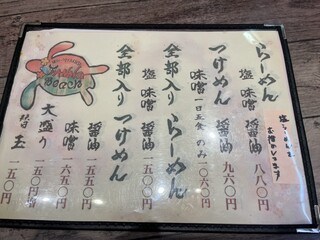 らーめん
醤油 八八〇円
塩 味噌
つけめん
醤油 九六〇円
味噌 一日五食のみ 一〇六〇円
全部入り らーめん
醤油
塩 味噌
全部入り つけめん
醤油 一五五〇円
味噌 一六五〇円
大盛り 一五〇円
替玉 一五〇円